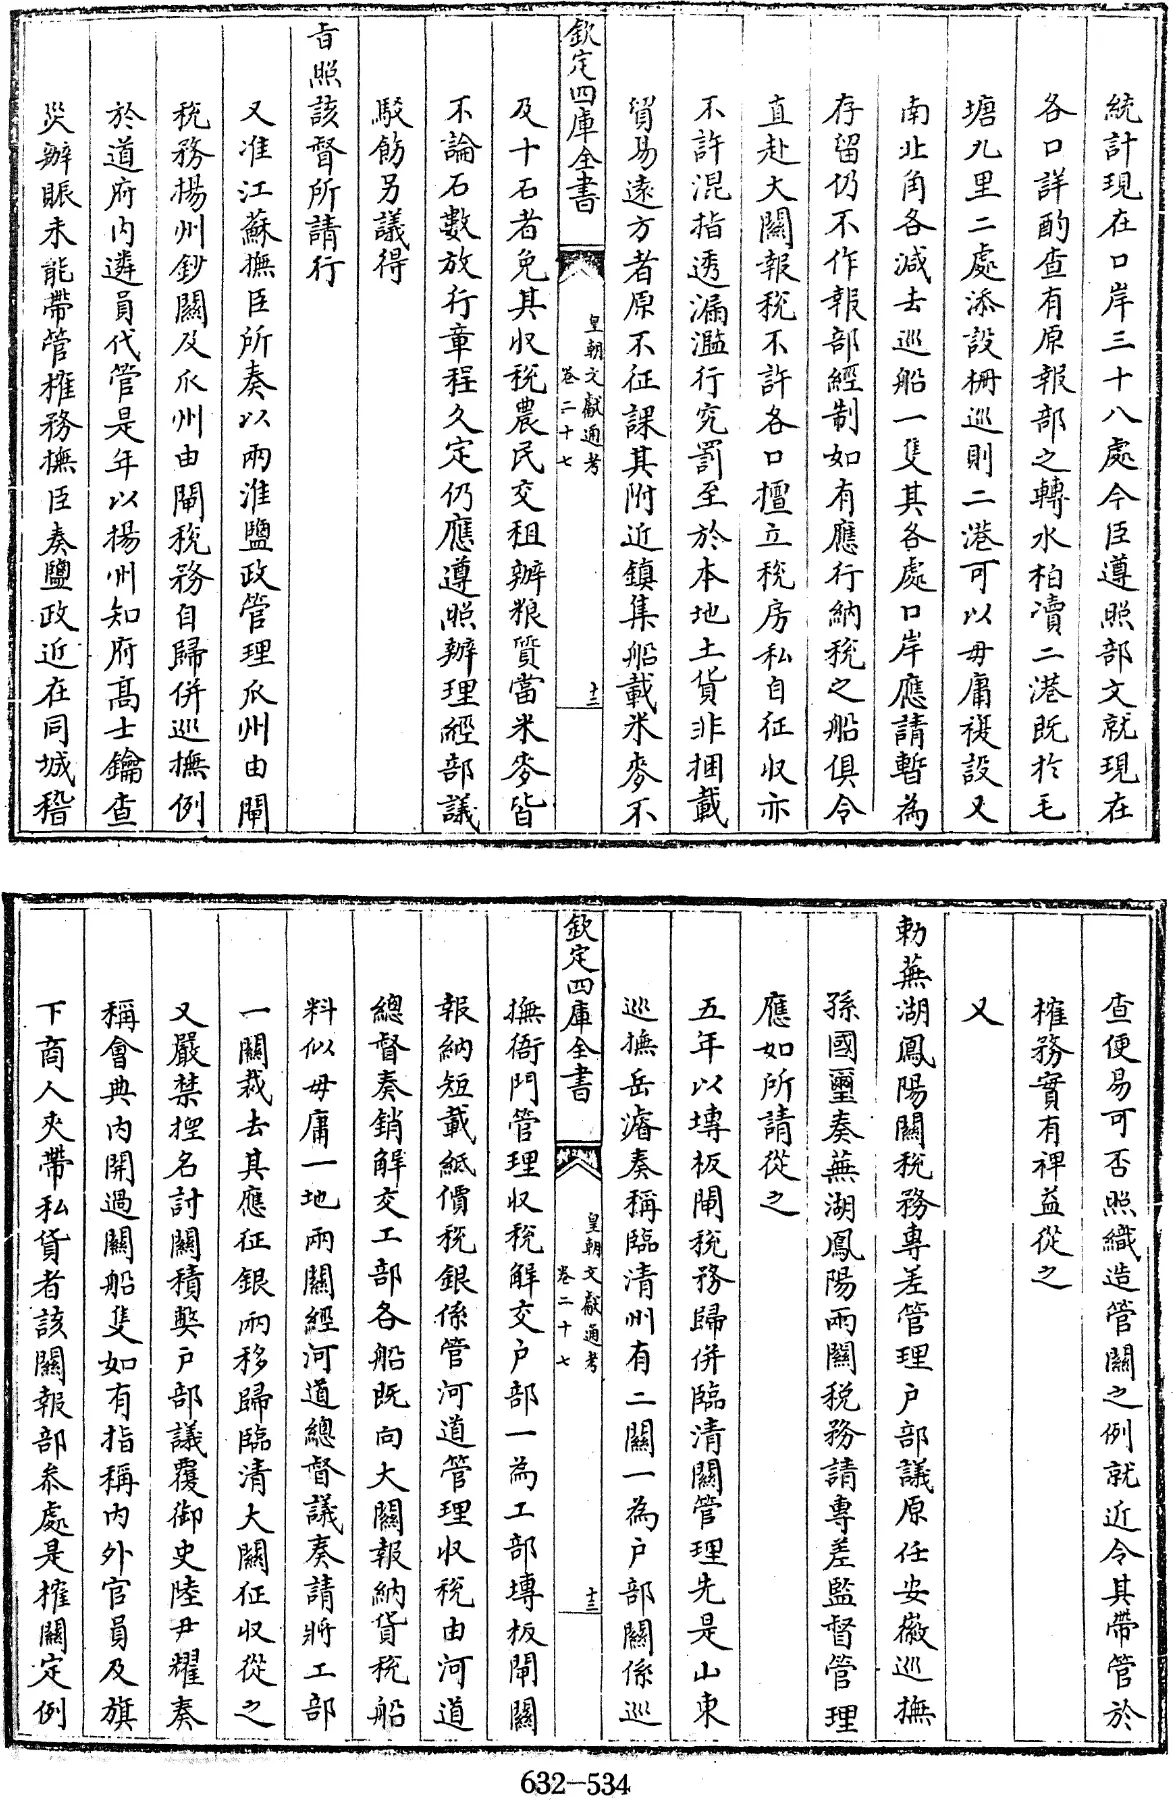 統計現在口岸三十八處今臣遵照部文就現在
各口詳酌查有原報部之轉水柏瀆二港既於毛
塘九里二處添設柵巡則二港可以毋庸複設又
南北角各減去巡船一隻其各處口岸應請暫為
存留仍不作報部經制如有應行納稅之船俱令
直赴大關報稅不許各口擅立稅房私自征收亦
不許混指透漏濫行究罰至於本地土貨非捆載
貿易遠方者原不征課其附近鎮集船載米麥不
欽定四庫全書
皇朝文獻通考
卷二十七
十三
及十石者免其收稅農民交租辦粮質當米麥皆
不論石數放行章程久定仍應遵照辦理經部議
駁飭另議得
旨照該督所請行
又准江蘇撫臣所奏以兩淮鹽政管理瓜州由閘
稅務揚州鈔關及瓜州由閘稅務自歸併巡撫例
於道府內遴員代管是年以揚州知府高士鑰查
災辦賑未能帶管榷務撫臣奏鹽政近在同城稽
查便易可否照織造管關之例就近令其帶管於
榷務實有裨益從之
又
勅蕪湖鳳陽關稅務專差管理户部議原任安徽巡撫
孫國璽奏蕪湖鳳陽兩關稅務請專差監督管理
應如所請從之
五年以塼板閘稅務歸併臨清關管理先是山東
巡撫岳濬奏稱臨清州有二關一為户部關係巡
欽定四庫全書
皇朝文獻通考
卷二十七
十三
撫衙門管理收稅解交户部一為工部塼板閘關
報納短載紙價稅銀係管河道管理收稅由河道
總督奏銷解交工部各船既向大關報納貨稅船
料似毋庸一地兩關經河道總督議奏請將工部
一關裁去其應征銀兩移歸臨清大關征收從之
又嚴禁捏名討關積弊户部議覆御史陸尹耀奏
稱會典內開過關船隻如有指稱內外官員及旗
下商人夾帶私貨者該關報部叅處是榷關定例
632-534